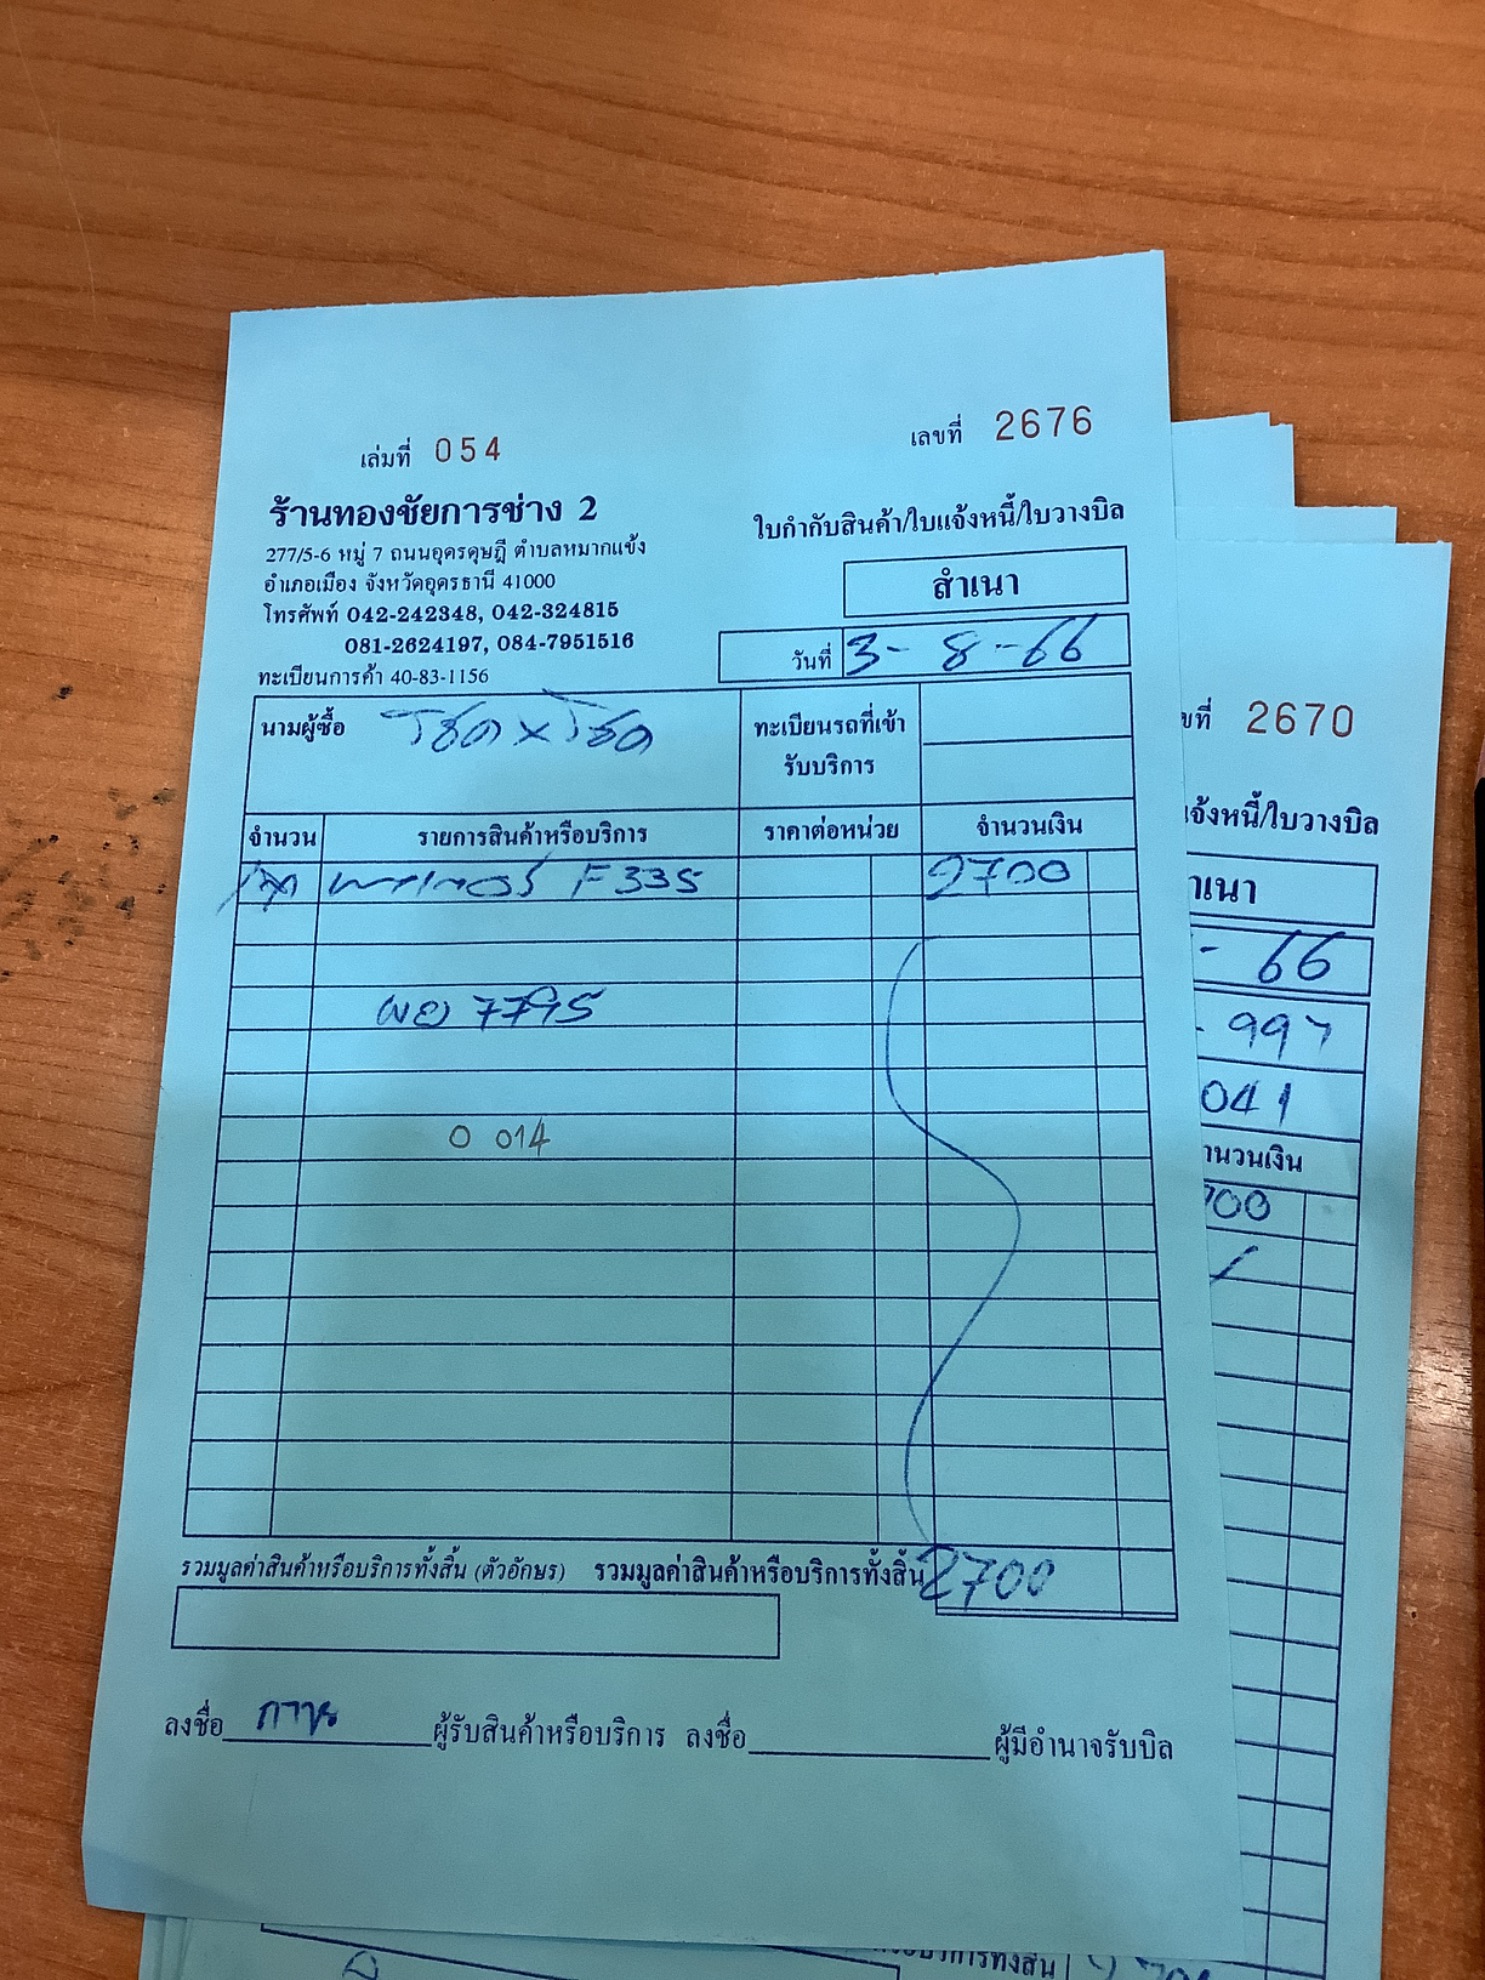 เล่มที่ 054
เลขที่ 2676
ร้านทองชัยการช่าง 2
277/5-6 หมู่ 7 ถนนอุดรดุษฎี ตำบลหมากแข้ง
อำเภอเมือง จังหวัดอุดรธานี 41000
โทรศัพท์ 042-242348, 042-324815
081-2624197, 084-7951516
ทะเบียนการค้า 40-83-1156
ใบกำกับสินค้า/ใบแจ้งหนี้/ใบวางบิล
สำเนา
วันที่ 3-8-66
นามผู้ซื้อ โชค x โชค
ทะเบียนรถที่เข้า
รับบริการ
จำนวน รายการสินค้าหรือบริการ ราคาต่อหน่วย จำนวนเงิน
F335 2700
7795
0 014
รวมมูลค่าสินค้าหรือบริการทั้งสิ้น (ตัวอักษร) รวมมูลค่าสินค้าหรือบริการทั้งสิ้น 2700
ลงชื่อ ผู้รับสินค้าหรือบริการ ลงชื่อ ผู้มีอำนาจรับบิล
ขที่ 2670
แจ้งหนี้/ใบวางบิล
าเนา
- 66
- 997
041
านวนเงิน
700